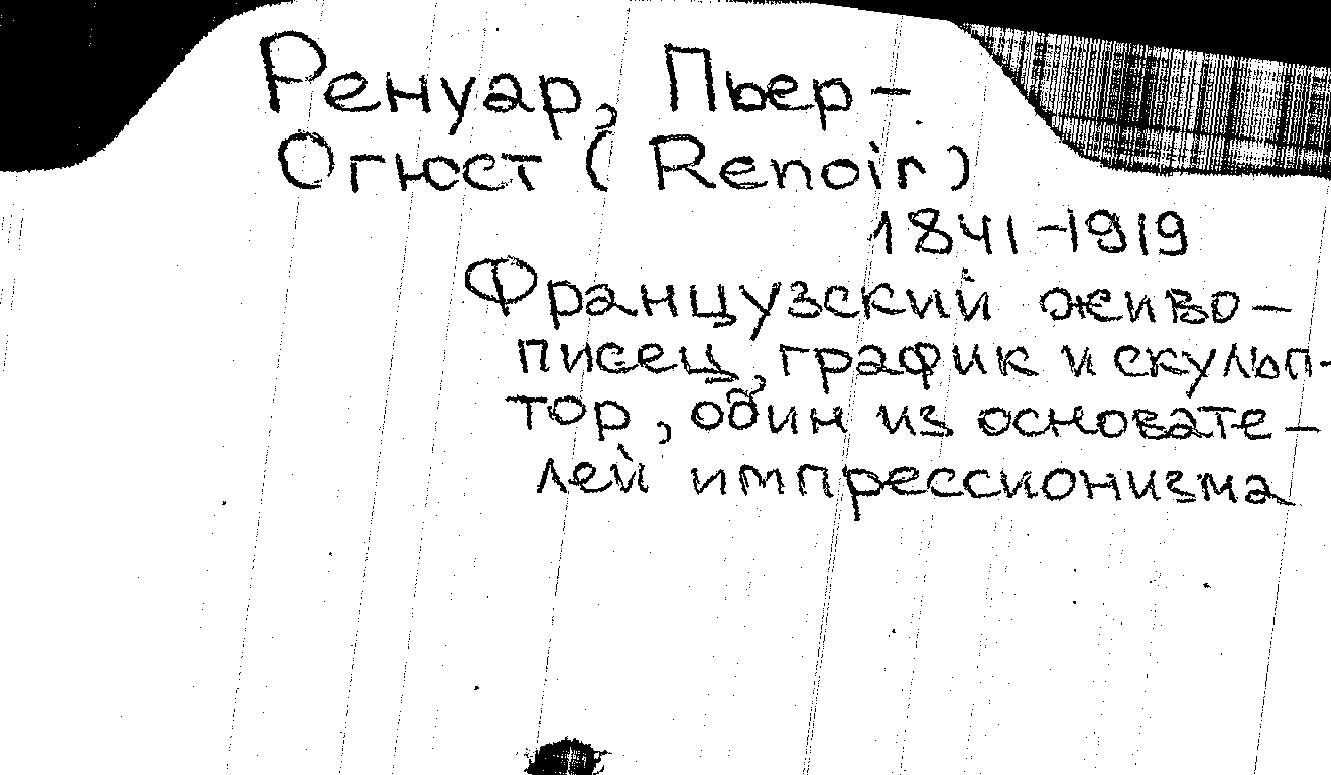 Ренуар, Пьер-
Огюст (Renoir)
1841-1919
Французский живо-
писец, график и скульп-
тор, один из основате-
лей импрессионизма